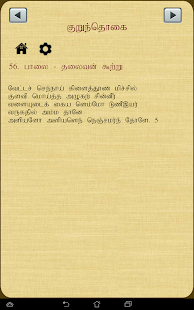 குறுந்தொகை
56. பாலை - தலைவன் கூற்று
வேட்டச் செந்நாய் கிளைத்தூண் மிச்சில்
குளவி மொய்த்த அழுகற் சின்னீர்
வளையுடைக் கைய ளெம்மோ டுணீஇயர்
வருகதில் அம்ம தானே
அளியளோ அளியளென் நெஞ்சமர்ந் தோளே. 5